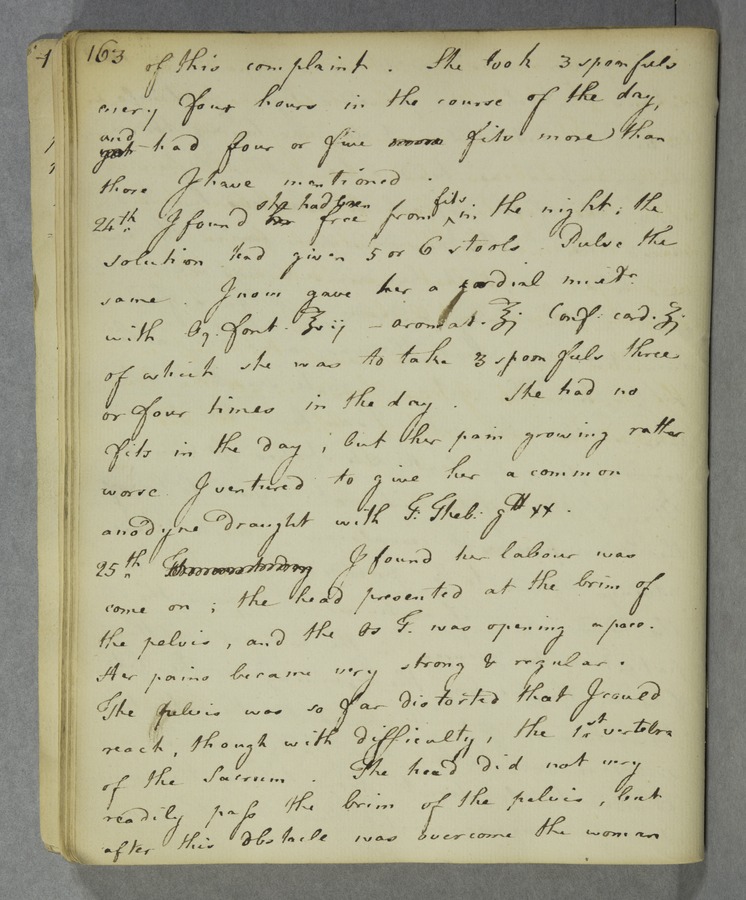 163
of this complaint. She took 3 spoonfuls
every four hours in the course of the day,
and had four or five fits more than
those I have mentioned.
24th I found she had been free from fits in the night; the
solution had given 5 or 6 stools. Pulse the
same. I now gave her a cordial mixtr.
with Aq. font. ℥vij - aromat. ℥j Conf. card. ʒj
of which she was to take 3 spoonfuls three
or four times in the day. She had no
fits in the day; but her pain growing rather
worse I ventured to give her a common
anodyne draught with T. Theb. gtt xx.
25th I found her labour was
come on; the head presented at the brim of
the pelvis, and the Os T. was opening apace.
Her pains became very strong & regular.
The pelvis was so far distorted that I could
reach, though with difficulty, the 1st vertebra
of the Sacrum. The head did not very
readily pass the brim of the pelvis, but
after this obstacle was overcome the woman